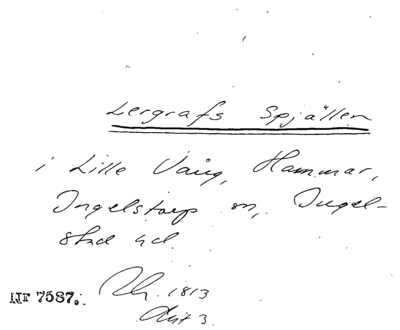 Lergrafs Spjällen
i Lille Vång, Hammar,
Ingelstorp sn, Ingel-
stad hd.
NF 7587. 1813
Akt 3.